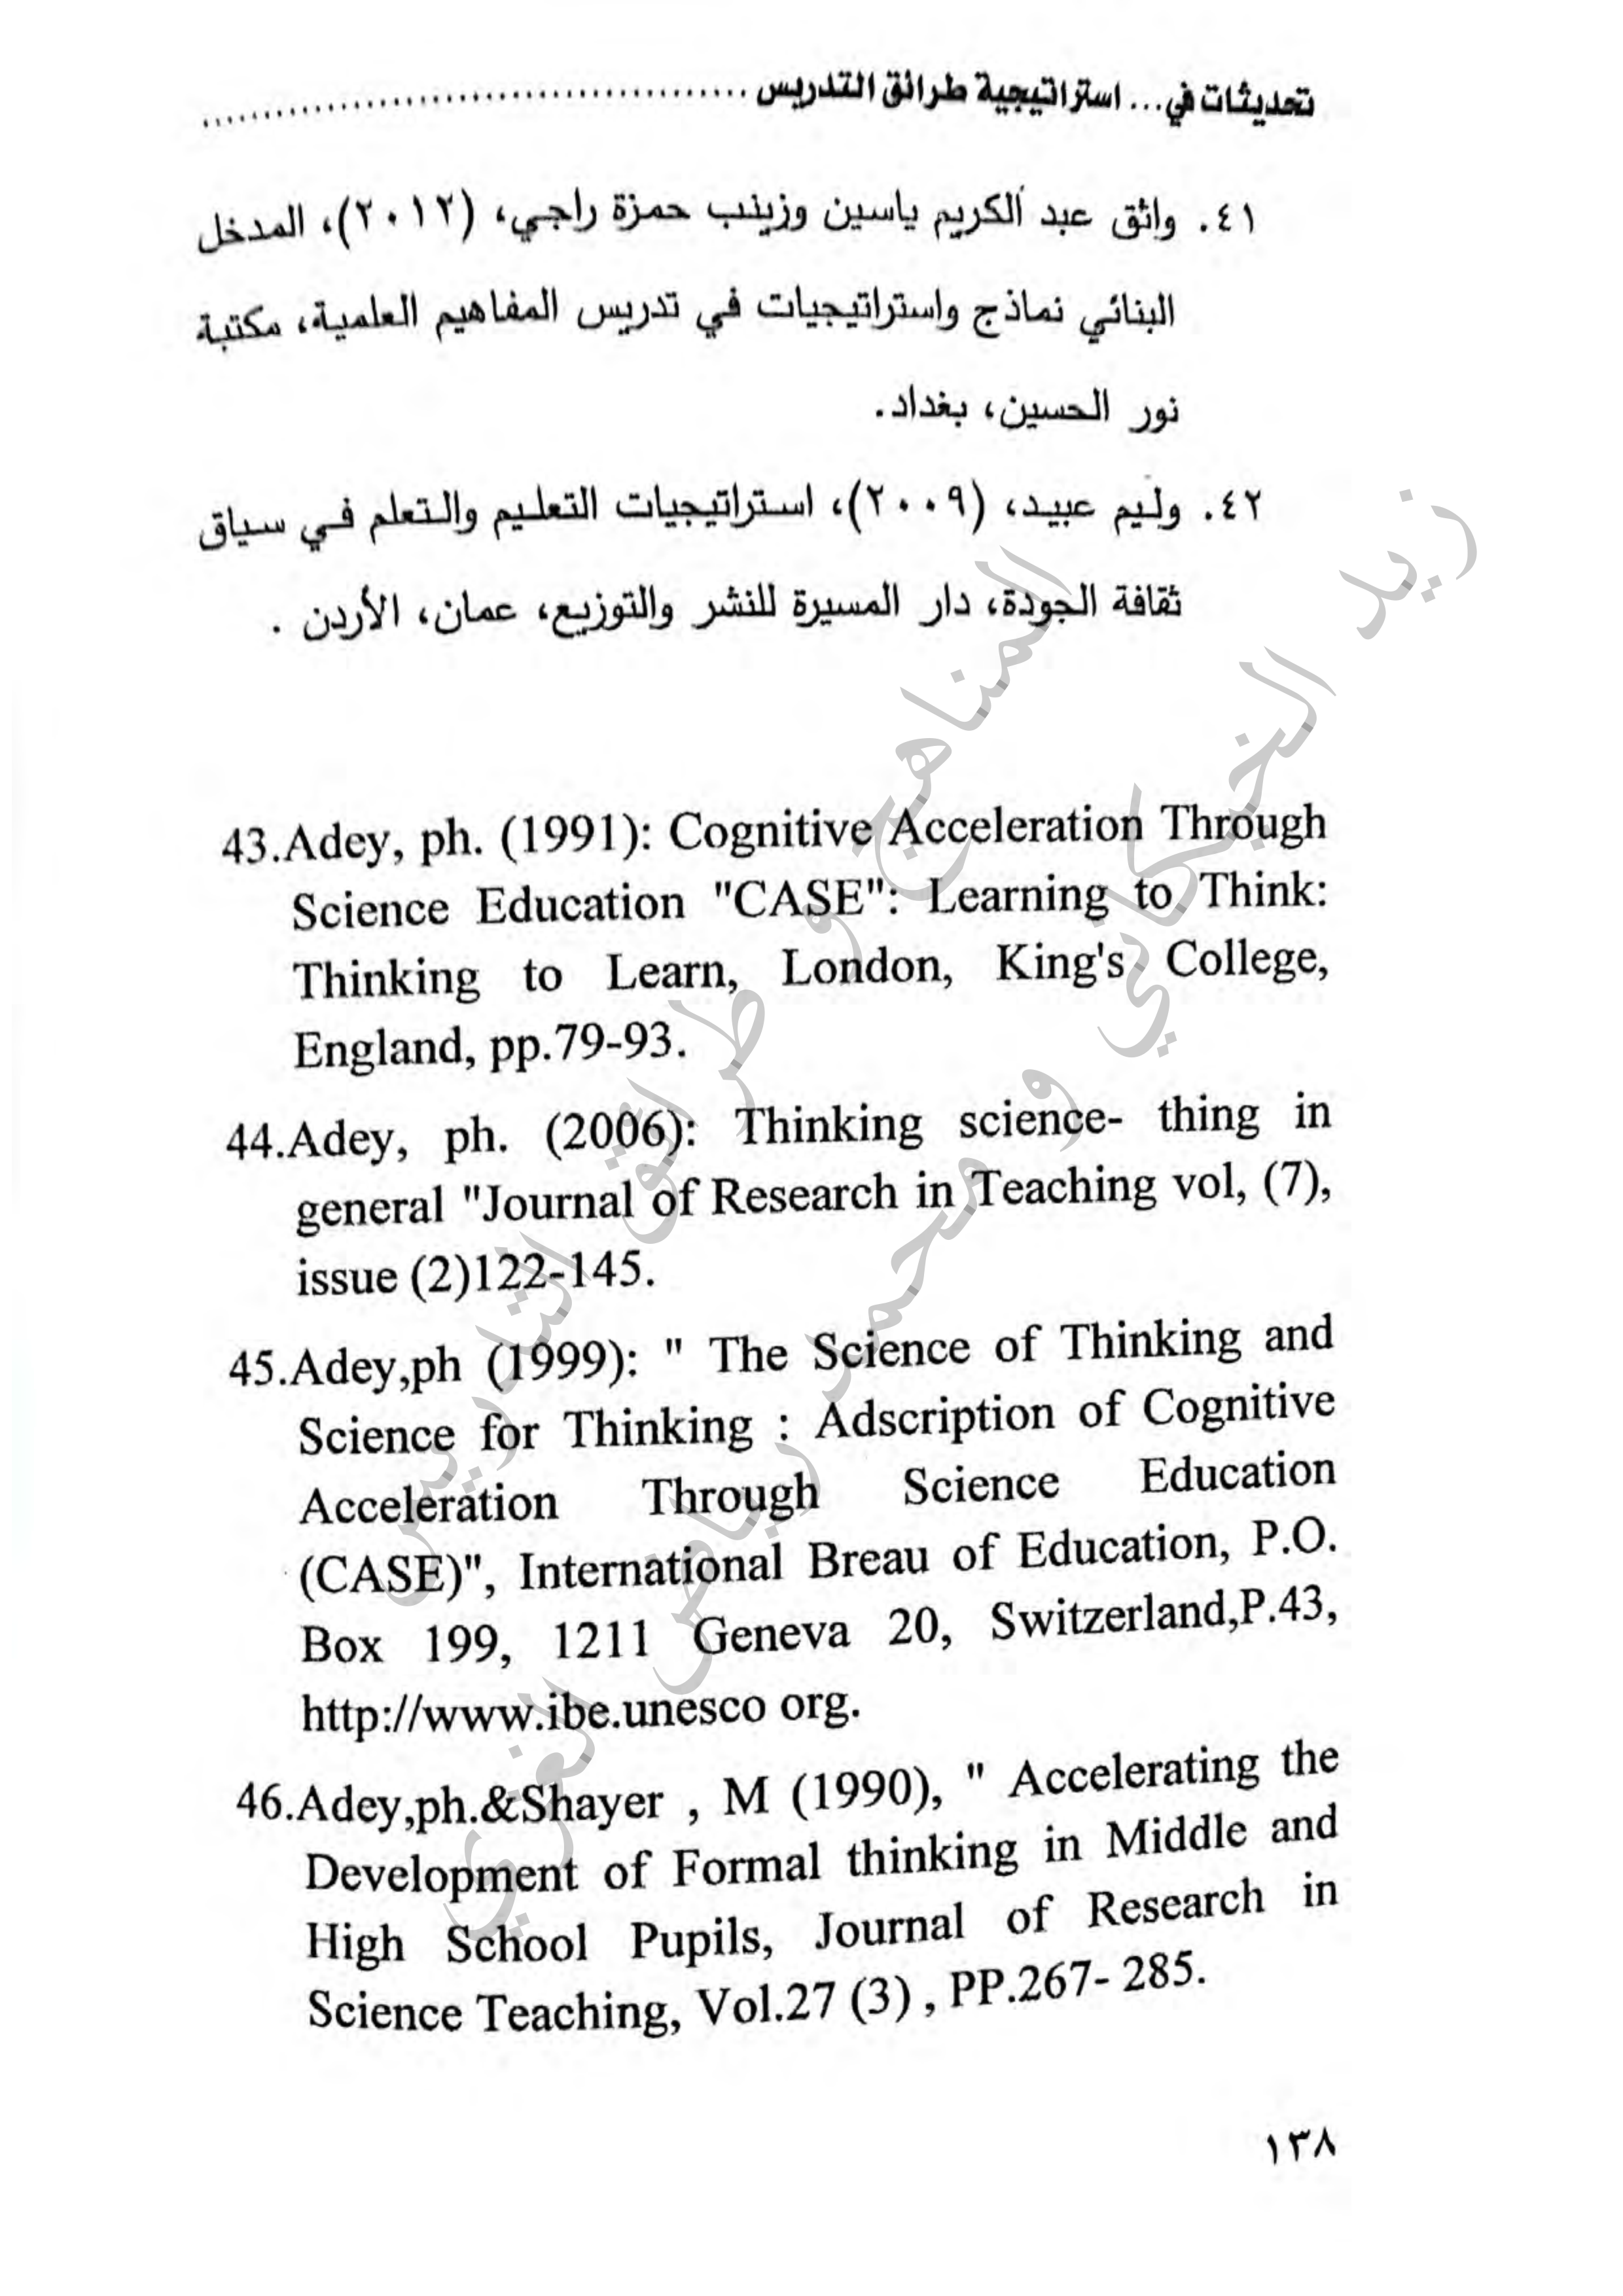 تحديثات في... استراتيجية طرائق التدريس ..........................................
٤١. واثق عبد الكريم ياسين وزينب حمزة راجي، (٢٠١٢)، المدخل
البنائي نماذج واستراتيجيات في تدريس المفاهيم العلمية، مكتبة
نور الحسين، بغداد.
٤٢. وليم عبيد، (٢٠٠٩)، استراتيجيات التعليم والتعلم في سياق
ثقافة الجودة، دار المسيرة للنشر والتوزيع، عمان، الأردن .
43.Adey, ph. (1991): Cognitive Acceleration Through
Science Education "CASE": Learning to Think:
Thinking to Learn, London, King's College,
England, pp.79-93.
44.Adey, ph. (2006): Thinking science- thing in
general "Journal of Research in Teaching vol, (7),
issue (2)122-145.
45.Adey,ph (1999): " The Science of Thinking and
Science for Thinking : Adscription of Cognitive
Acceleration Through Science Education
(CASE)", International Breau of Education, P.O.
Box 199, 1211 Geneva 20, Switzerland,P.43,
http://www.ibe.unesco org.
46.Adey,ph.&Shayer , M (1990), " Accelerating the
Development of Formal thinking in Middle and
High School Pupils, Journal of Research in
Science Teaching, Vol.27 (3) , PP.267- 285.
١٣٨
المناهج و طرائق التدريس
زيد الخيكاني و محمد رياض الغزي